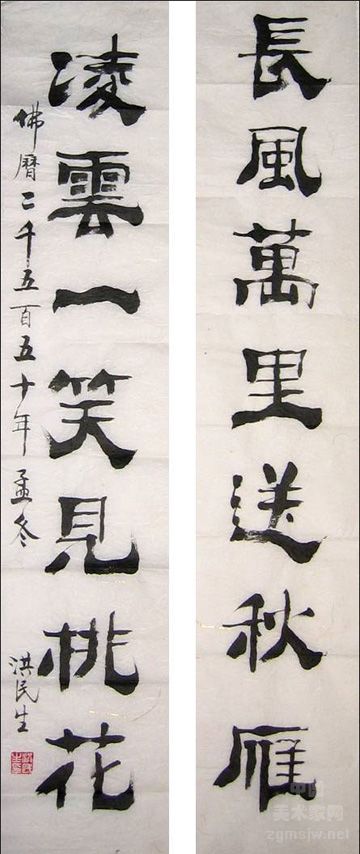 長風萬里送秋雁
凌雲一笑見桃花
佛曆二千五百五十年孟冬
洪民生
中国
美术家网
zgmsjw.net